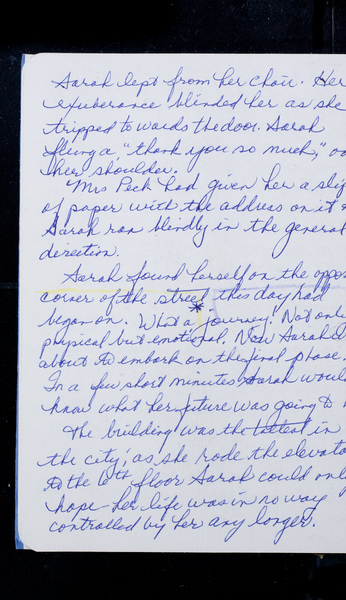 Sarah lept from her chair. Her
exuberance blinded her as she
tripped towards the door. Sarah
flung a, "thank you so much," ov
her shoulder.
Mrs Peck had given her a slip
of paper with the address on it &
Sarah ran blindly in the general
direction.
Sarah found herself on the oppos
corner of the street this day had
began on. What a journey! Not only
physical but emotional. Now Sarah
about to embark on the final phase.
In a few short minutes Sarah would
know what her future was going to
The building was the tallest in
the city, as she rode the elevato
to the 10th floor Sarah could only
hope her life was in no way
controlled by her any longer.